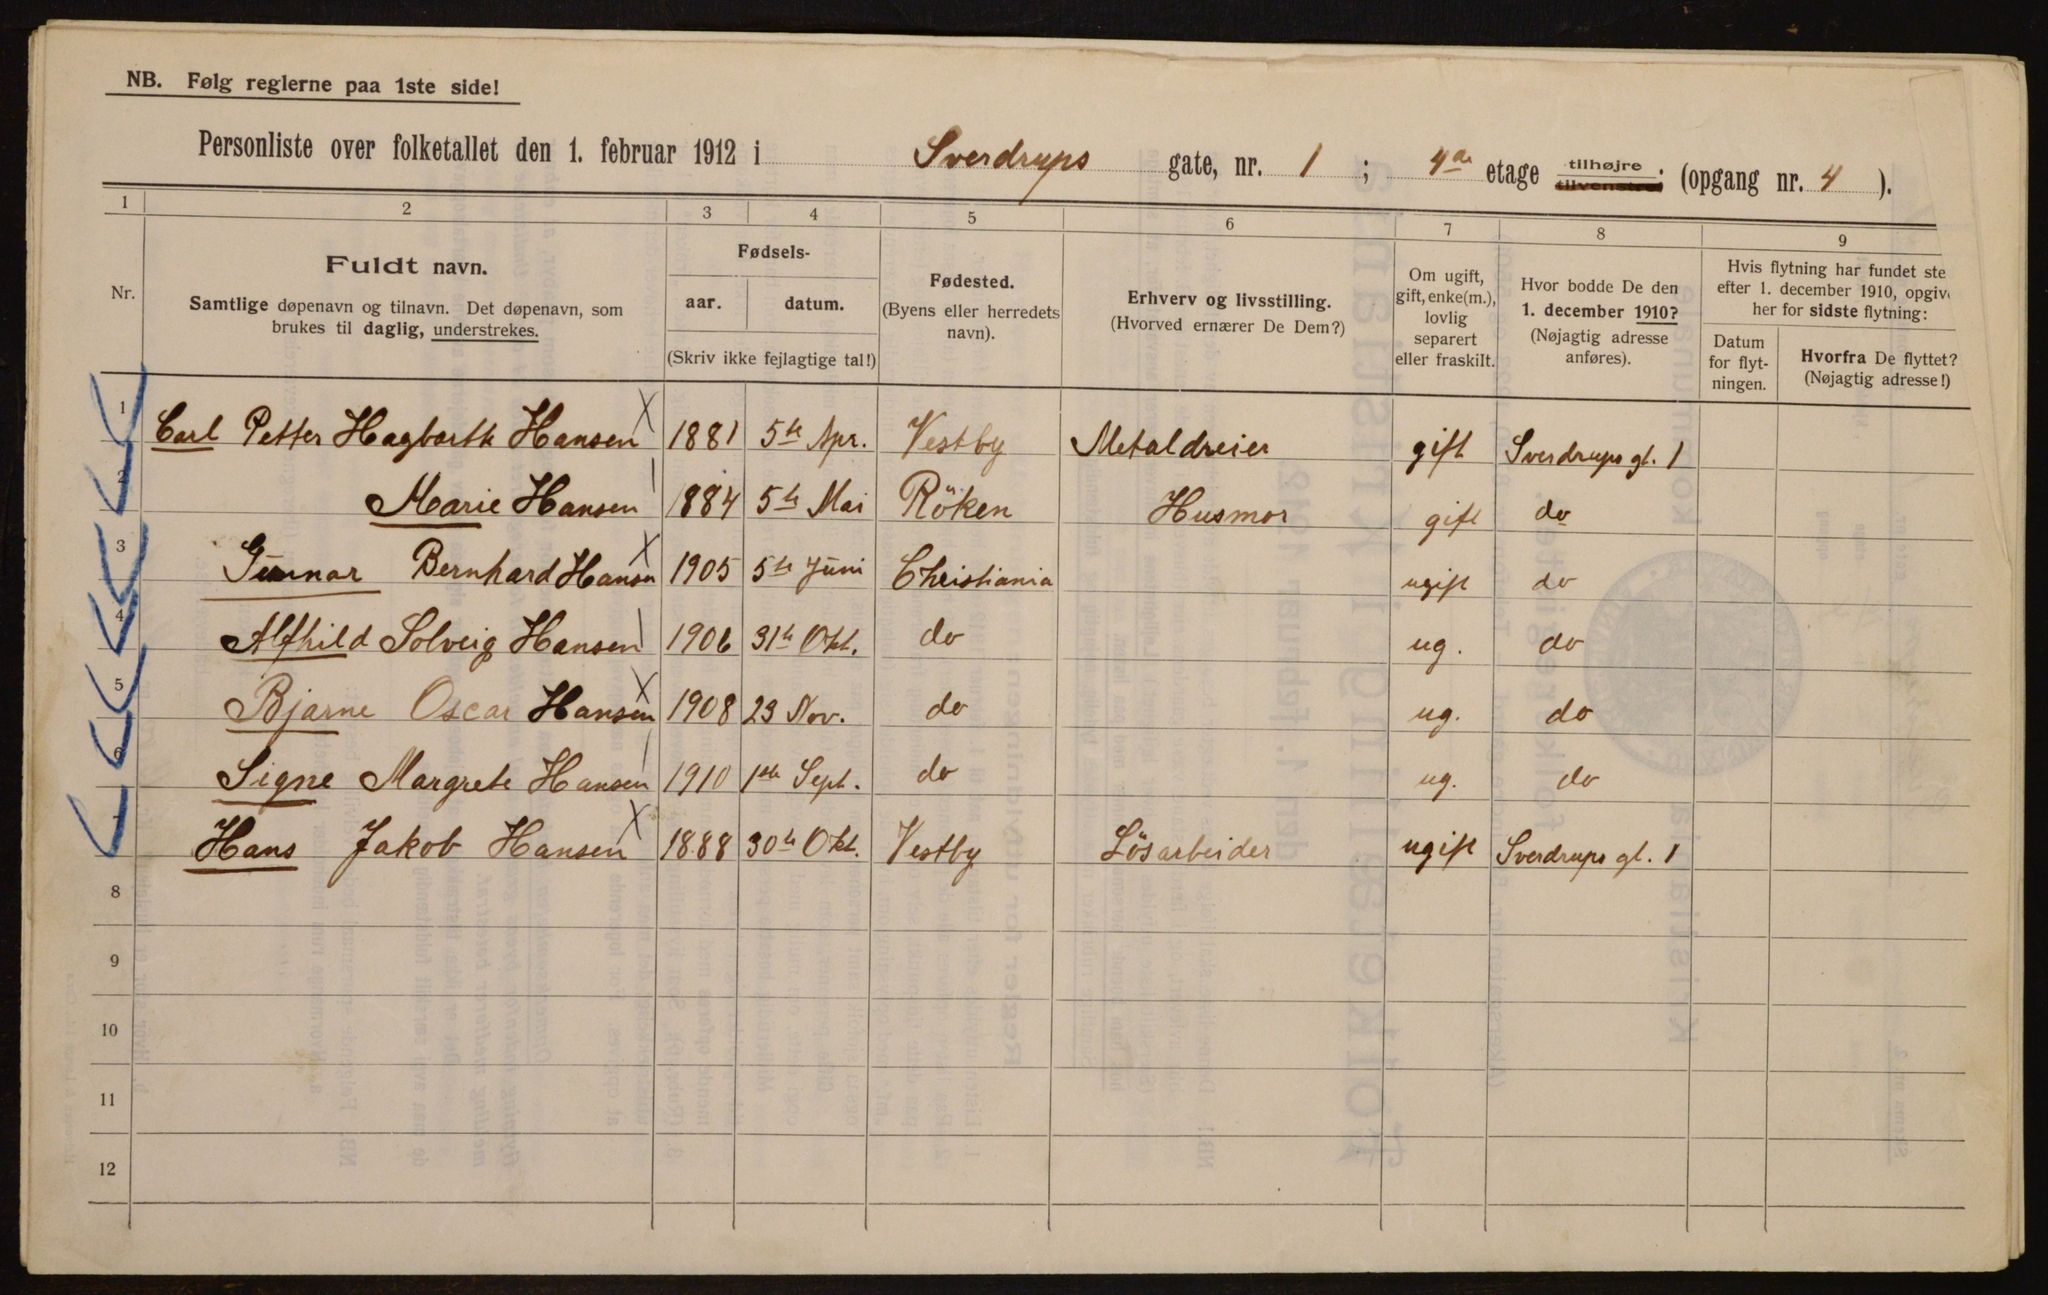 NB. Følg reglerne paa 1ste side!
Personliste over folketallet den 1. februar 1912 i Sverdrups gate, nr. 1 ; 4de etage tilhøjre. tilvenstre. (opgang nr. 4 ).
1 2 3 4 5 6 7 8 9
Nr.
Fuldt navn.
Samtlige døpenavn og tilnavn. Det døpenavn, som
brukes til daglig, understrekes.
Fødsels-
aar. datum.
(Skriv ikke fejlagtige tal!)
Fødested.
(Byens eller herredets
navn).
Erhverv og livsstilling.
(Hvorved ernærer De Dem?)
Om ugift,
gift, enke(m.),
lovlig
separert
eller fraskilt.
Hvor bodde De den
1. december 1910?
(Nøjagtig adresse
anføres).
Hvis flytning har fundet ste
efter 1. december 1910, opgiv
her for sidste flytning:
Datum
for flyt-
ningen.
Hvorfra De flyttet?
(Nøjagtig adresse!)
1 Carl Petter Hagbarth Hansen X 1881 5te Apr. Vestby Metaldreier gift Sverdrups gt. 1
2 Marie Hansen 1884 5te Mai Röken Husmor gift do
3 Gunnar Bernhard Hansen X 1905 5te Juni Christiania ugift do
4 Alfhild Solveig Hansen 1906 31te Okt. do ug. do
5 Bjarne Oscar Hansen X 1908 23 Nov. do ug. do
6 Signe Margrete Hansen 1910 1ste Sept. do ug. do
7 Hans Jakob Hansen X 1888 30te Okt. Vestby Lösarbeider ugift Sverdrups gt. 1
8
9
10
11
12